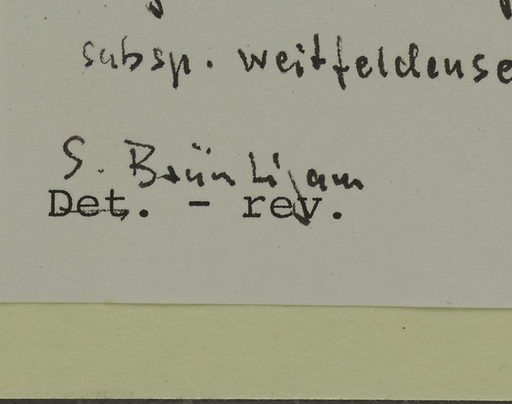 subsp. weitfeldense
S. Bräutigam
Det. - rev.